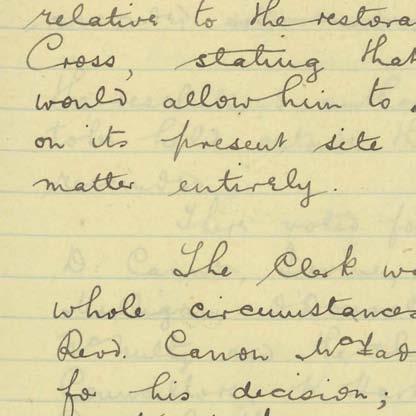 relative to the restora
Cross, stating that
would allow him to
on its present site
matter entirely.
The Clerk wa
whole circumstances
Revd. Canon McFad
for his decision;